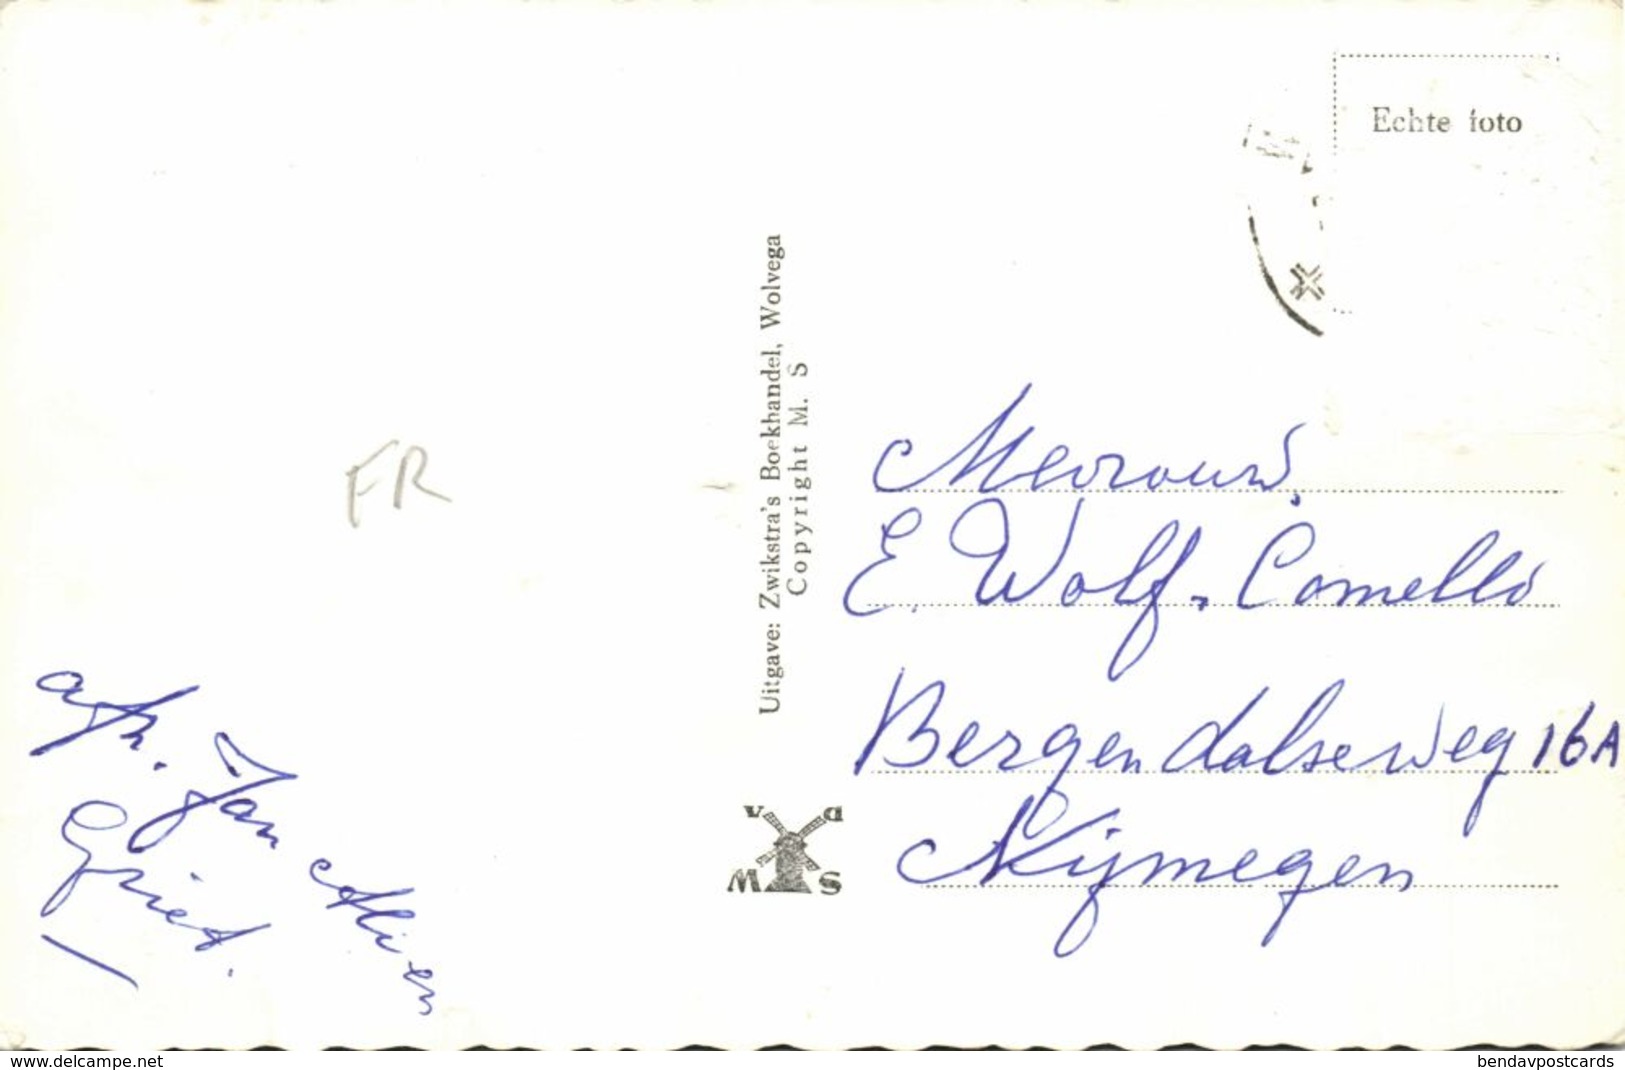 Echte foto
FR
Uitgave: Zwikstra's Boekhandel, Wolvega
Copyright M. S
Mevrouw.
E. Wolf-Comello
Bergendalseweg 16A
Nijmegen
afz. Jan Mien
Griet.
V D
M S
www.delcampe.net
bendavpostcards